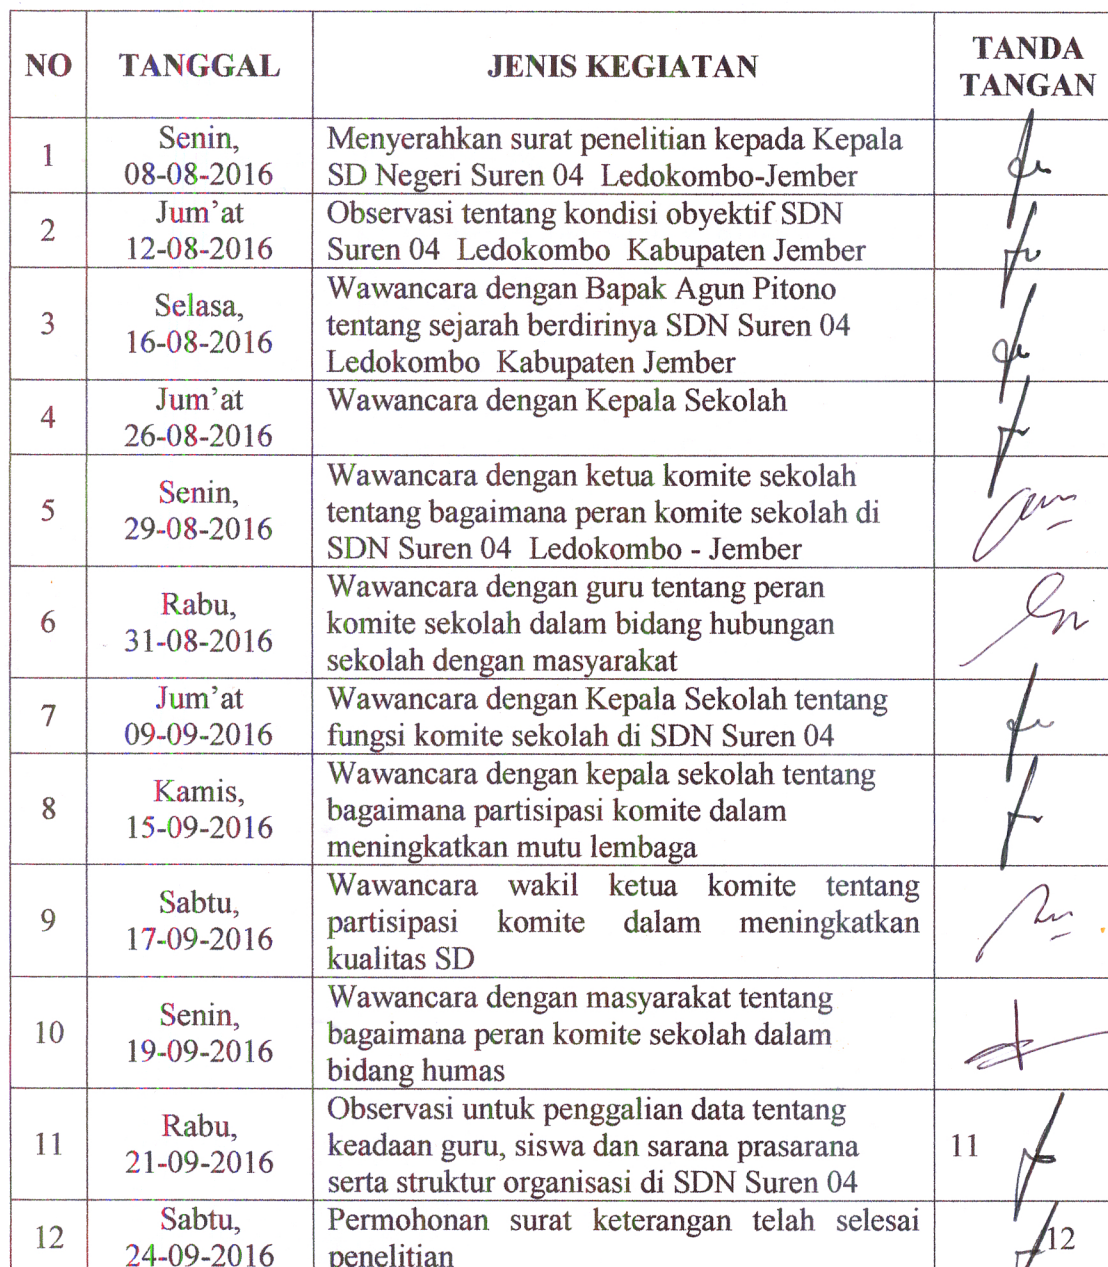 NO TANGGAL JENIS KEGIATAN TANDA TANGAN
1 Senin, 08-08-2016 Menyerahkan surat penelitian kepada Kepala
SD Negeri Suren 04 Ledokombo-Jember
2 Jum'at 12-08-2016 Observasi tentang kondisi obyektif SDN
Suren 04 Ledokombo Kabupaten Jember
3 Selasa, 16-08-2016 Wawancara dengan Bapak Agun Pitono
tentang sejarah berdirinya SDN Suren 04
Ledokombo Kabupaten Jember
4 Jum'at 26-08-2016 Wawancara dengan Kepala Sekolah
5 Senin, 29-08-2016 Wawancara dengan ketua komite sekolah
tentang bagaimana peran komite sekolah di
SDN Suren 04 Ledokombo - Jember
6 Rabu, 31-08-2016 Wawancara dengan guru tentang peran
komite sekolah dalam bidang hubungan
sekolah dengan masyarakat
7 Jum'at 09-09-2016 Wawancara dengan Kepala Sekolah tentang
fungsi komite sekolah di SDN Suren 04
8 Kamis, 15-09-2016 Wawancara dengan kepala sekolah tentang
bagaimana partisipasi komite dalam
meningkatkan mutu lembaga
9 Sabtu, 17-09-2016 Wawancara wakil ketua komite tentang
partisipasi komite dalam meningkatkan
kualitas SD
10 Senin, 19-09-2016 Wawancara dengan masyarakat tentang
bagaimana peran komite sekolah dalam
bidang humas
11 Rabu, 21-09-2016 Observasi untuk penggalian data tentang
keadaan guru, siswa dan sarana prasarana
serta struktur organisasi di SDN Suren 04
11
12 Sabtu, 24-09-2016 Permohonan surat keterangan telah selesai
penelitian
12